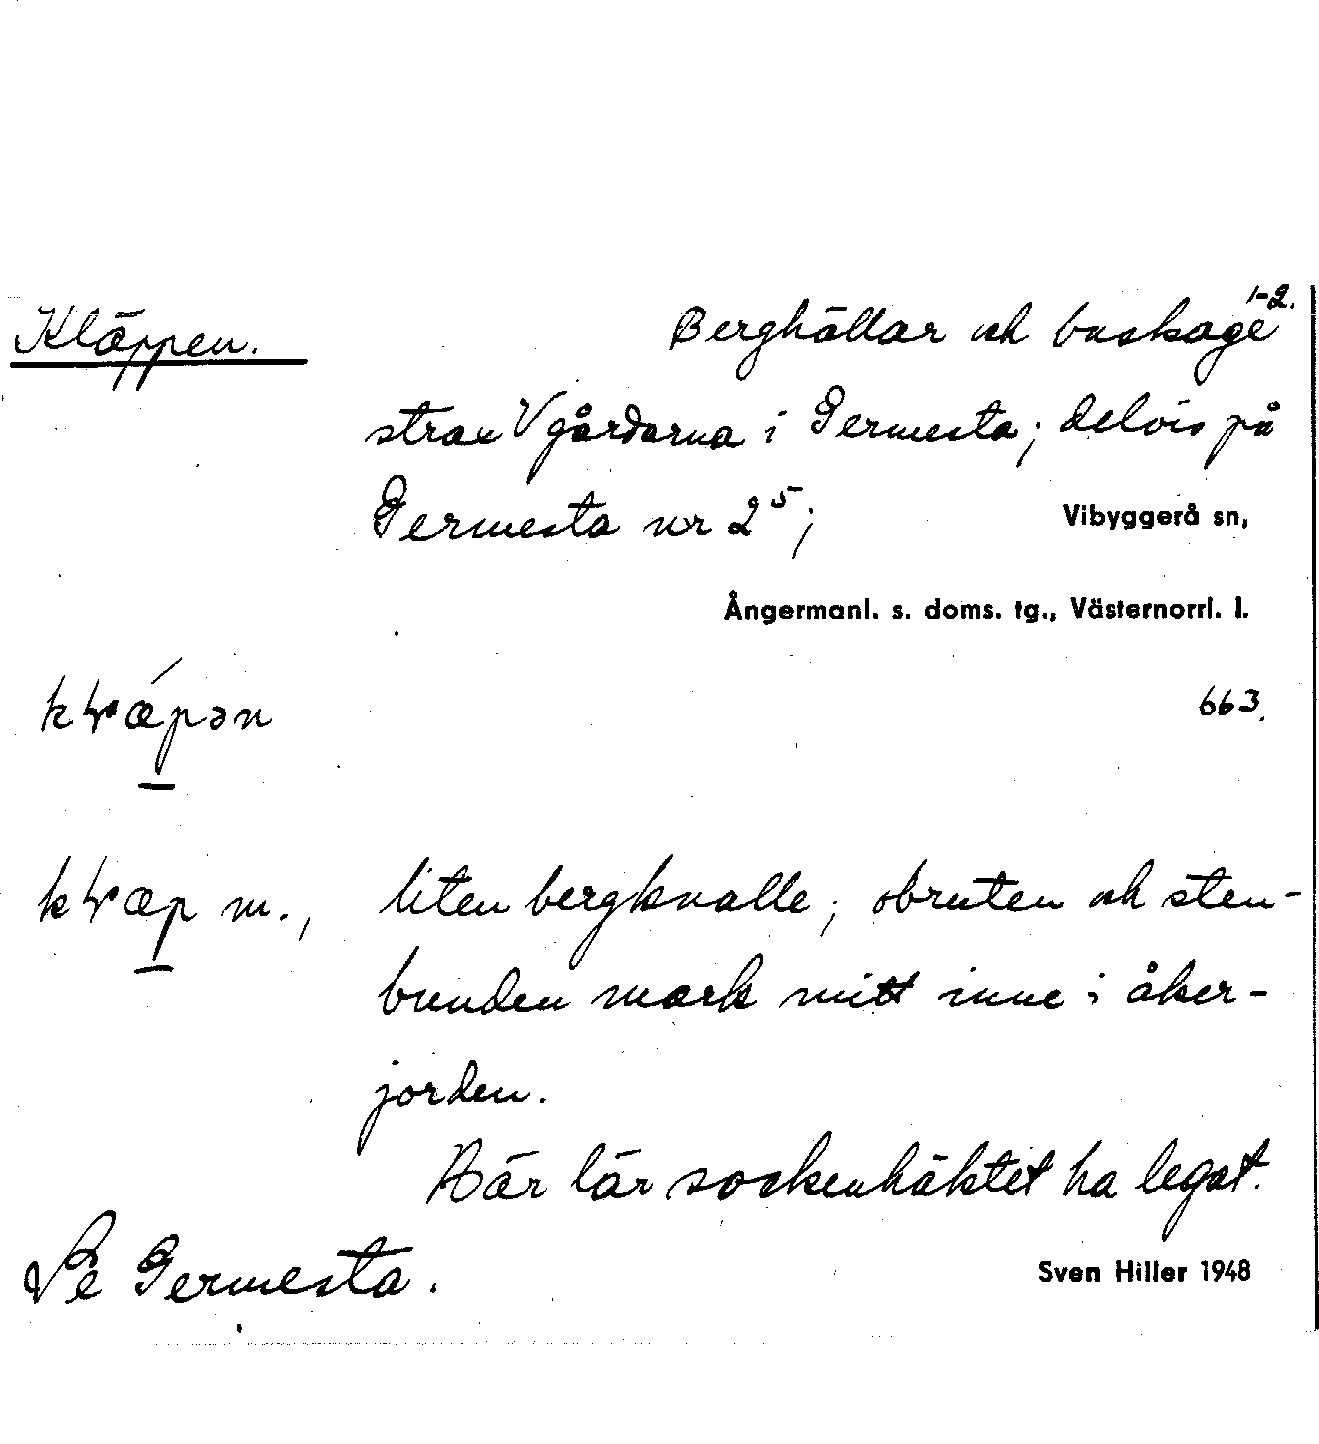 1-2.
Kläppen. Berghällar och buskage
strax V gårdarna i Germesta; delvis på
Germesta nr 2⁵; Vibyggerå sn,
Ångermanl. s. doms. tg., Västernorrl. l.
663.
liten bergknalle; obruten och sten-
bunden mark mitt inne i åker-
jorden.
Här lär sockenhäktet ha legat.
Se Germesta. Sven Hiller 1948